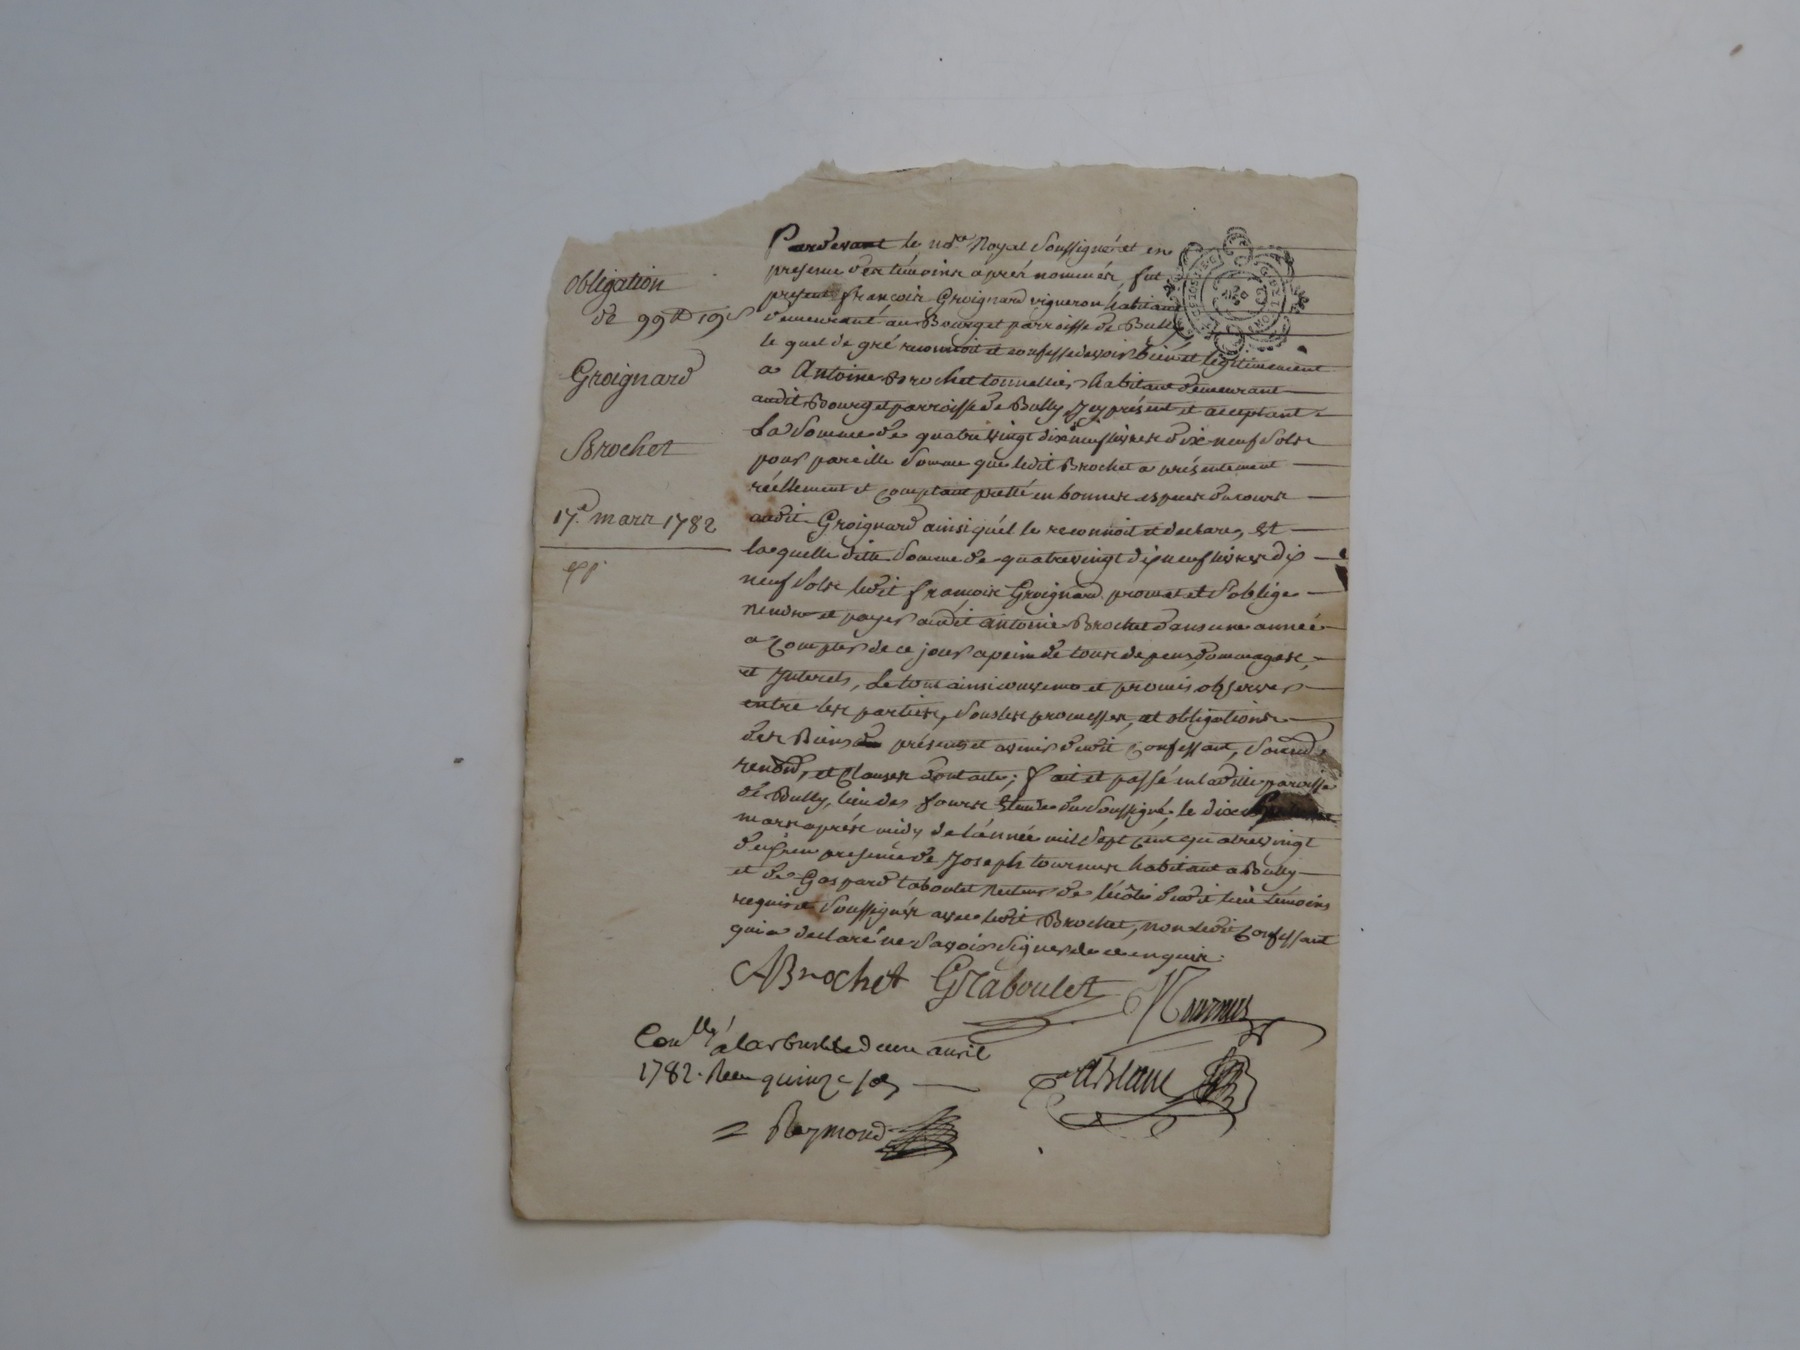 Obligation
de 99 lt 19 s
Groignard
Brochet
17.e mars 1782
Pardevant le no.re Royal soussigné et en
presence des témoins aprés nommés, fut
présent françois Groignard vigneron habitant
demeurant au Bourg et parroisse de Bully
le quel de gré reconnoit et confesse devoir bien et légitimement
a Antoine Brochet tonnellier habitant demeurant
audit Bourg et parroisse de Bully Icy présent et acceptant
La Somme de quatre vingt dix neuf livres dix neuf sols
pour pareille somme que ledit Brochet a présentement
réellement et comptant pretté en bonnes espèces du cours
audit Groignard ainsi qu'el le reconnoit et declare, Et
laquelle ditte somme de quatre vingt dix neuf livres dix
neuf sols ledit françois Groignard promet et s'oblige
rendre et payer audit antoine Brochet dans une année
a compter de ce jour a peine de tous depens, dommages,
et Interets, Le tout ainsi convenu et promis observer
entre les parties, sous les promesses, et obligations
des Biens présents et avenir dudit confessant,
renon, et Clauses dont acte; fait et passé en ladite paroisse
de Bully, lieu des fours Etude du soussigné, le dix
mars aprés midy de l'année mil sept cent quatre vingt
deux en presence de Joseph tournus habitant a Bully
et de Gaspard taboulet Recteur de l'école dudit lieu témoins
requis et soussignés avec ledit Brochet, non ledit confessant
qui a declaré ne savoir signer de ce enquis.
ABrochet GTaboulet JTournus
Con.llé a larbresle d avril
1782. Recu quinze sols
DaBlanc
Raymond